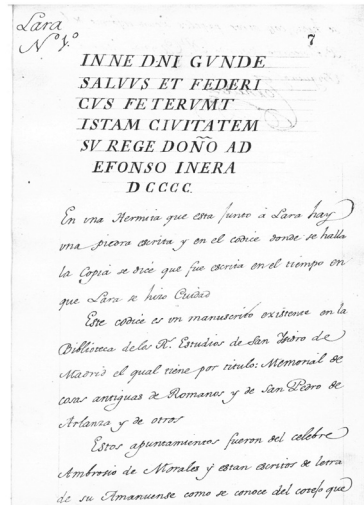 Lara
Nº 4º
7
IN NE DNI GVNDE
SALVUS ET FEDERI
CVS FETERVMT
ISTAM CIVITATEM
SV REGE DOÑO AD
EFONSO IN ERA
DCCCC.
En vna Hermita que esta junto á Lara hay
vna piedra escrita y en el codice donde se halla
la Copia se dice que fue escrita en el tiempo en
que Lara se hizo Ciudad
Este codice es vn manuscrito existente en la
Biblioteca de los R.s Estudios de San Ysidro de
Madrid el qual tiene por titulo: Memorial de
cosas antiguas de Romanos y de San Pedro de
Arlanza y de otros
Estos apuntamientos fueron del celebre
Ambrosio de Morales y estan escritos de letra
de su Amanuense como se conoce del cotejo que